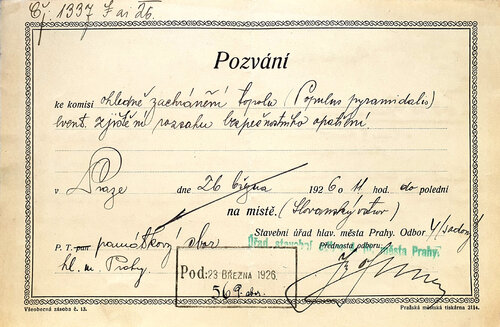 Čj. 1337 F ai 26.
Pozvání
ke komisi ohledně zachránění topolu (Populus pyramidalis)
event. zjištění rozsahu bezpečnostního opatření.
v Praze dne 26 března 1926 o 11 hod. do poledni
na místě. (Slovanský ostrov)
Stavební úřad hlav. města Prahy. Odbor
P. T. pan památkový sbor
Úřad stavební města Prahy.
přednosta odboru:
hl. m. Prahy.
Pod: 23 BŘEZNA 1926
569
Všeobecná zásoba č. 13.
Pražská městská tiskárna